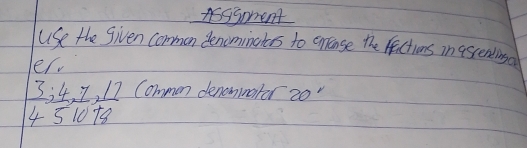 Assignment
Use the given common denominators to arrange the fractions in ascending o
er.
3, 4, 7, 17 Common denominator 20"
4 5 10